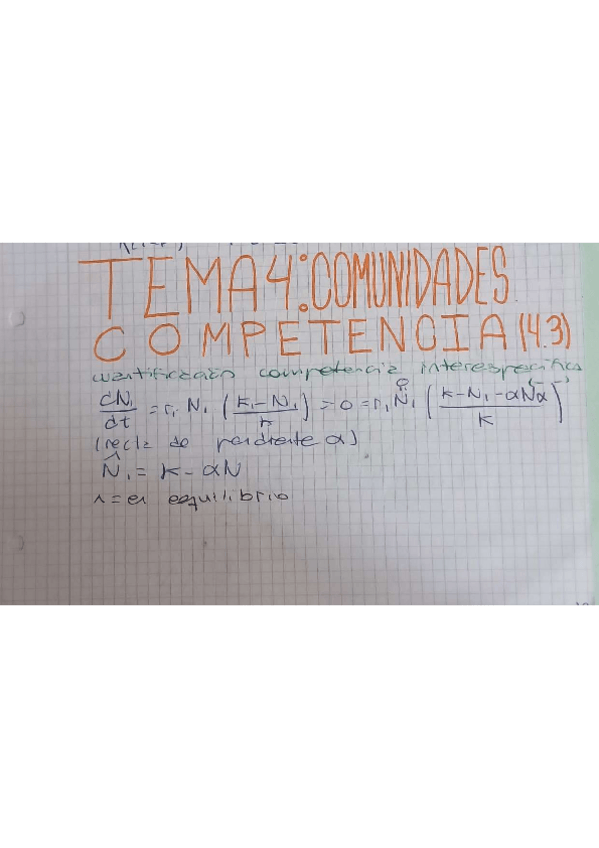 TEMA 4: COMUNIDADES
COMPETENCIA (4.3)
cuantificación competencia interespecífica
dN₁/dt = r₁ N₁ (K₁-N₁ / K) → 0 = r₁ N̈₁ (K-N₁-αNα / K)
(recta de pendiente α)
N̂₁ = K - αN
^ = el equilibrio